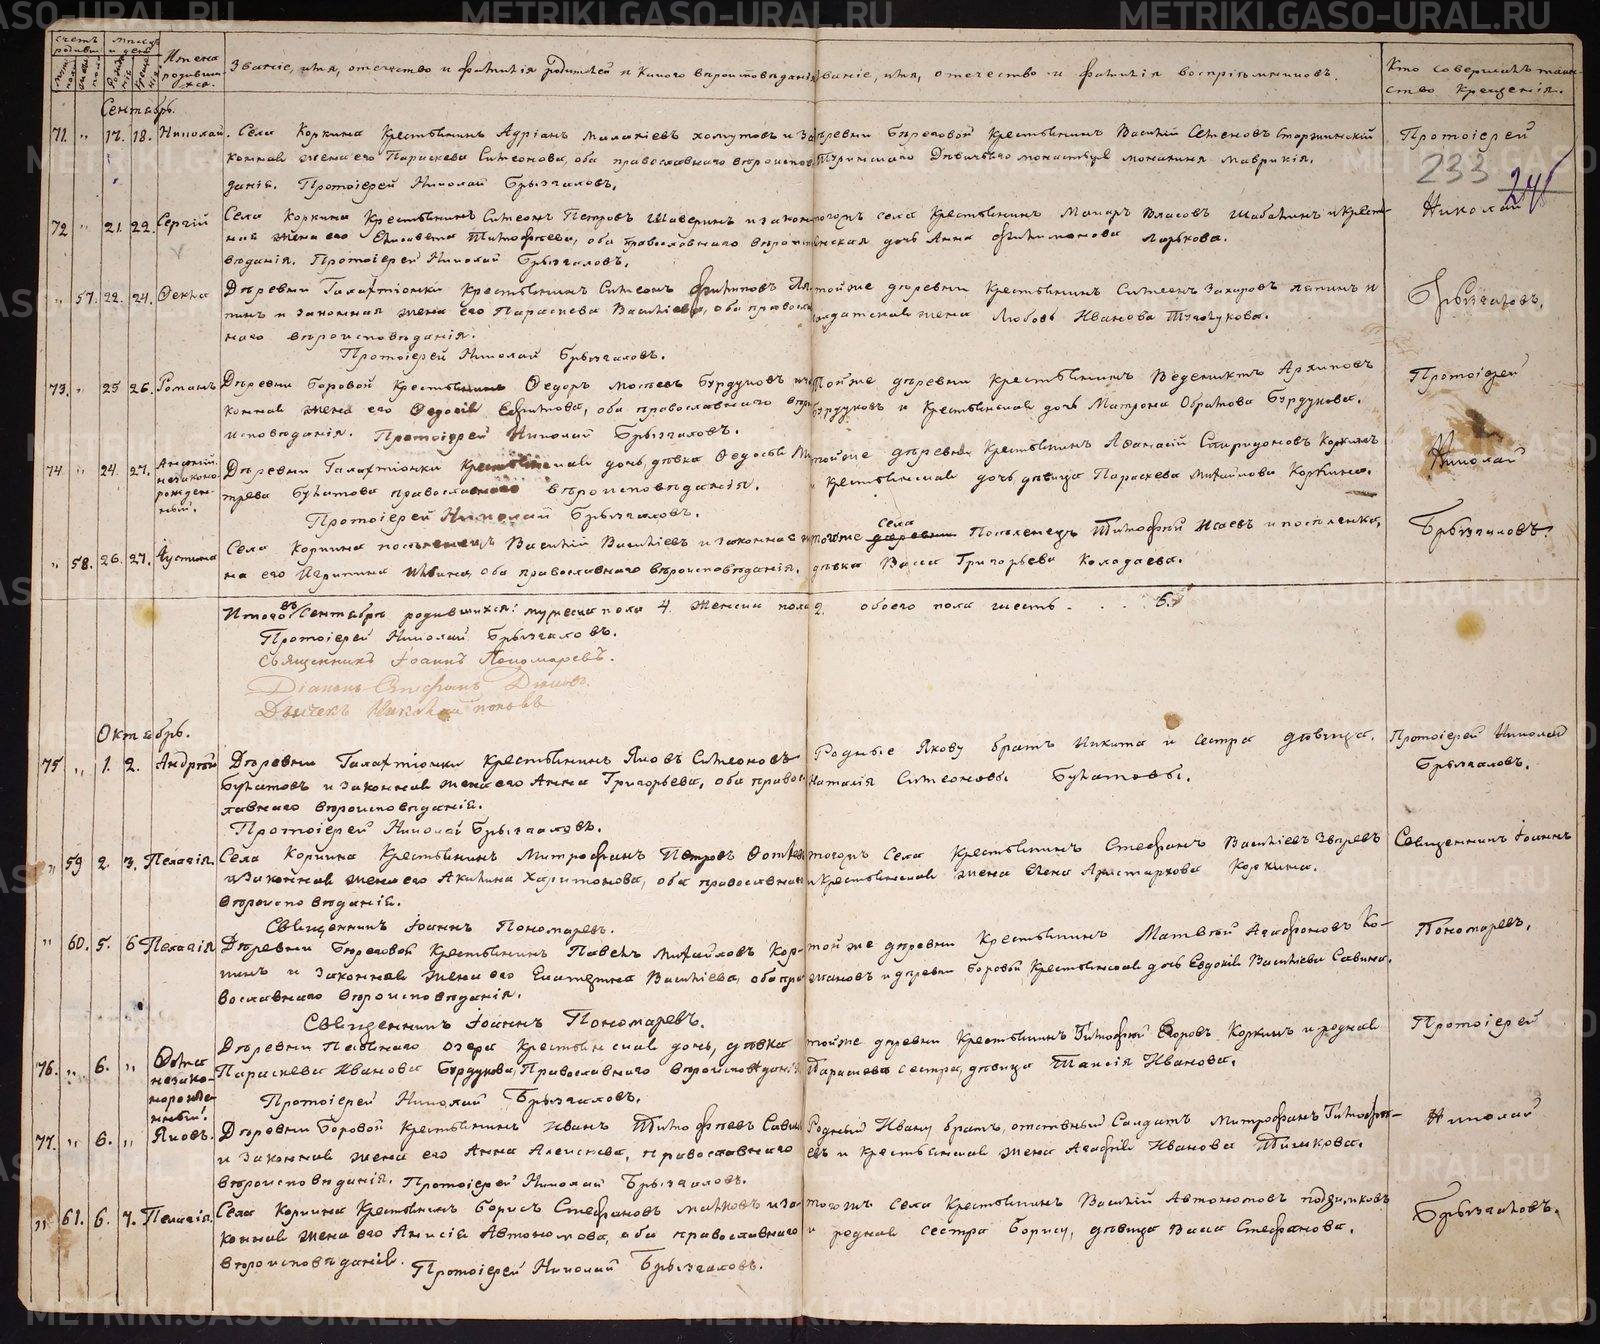 Счетъ родивш. Мѣсяцъ и день Имена родившихся. Званіе, имя, отечество и фамилія родителей и какого вѣроисповѣданія Званіе, имя, отечество и фамилія воспріемниковъ. Кто совершалъ таинство крещенія.
Сентябрь.
71. " 17. 18. Николай. Села Коркина крестьянинъ Адріанъ Малахіевъ Хомутовъ и законная жена его Параскева Симеонова, оба православнаго вѣроисповѣданія. Протоіерей Николай Брызгаловъ.
деревни Береговой крестьянинъ Василій Семеновъ
Туринскаго Дѣвичьяго монастыря монахиня Маврикія.
Протоіерей
233
Николай
72 " 21. 22. Сергій Села Коркина крестьянинъ Симеонъ Петровъ Шаверинъ и законная жена его Елисавета Тимофѣева, оба православнаго вѣроисповѣданія. Протоіерей Николай Брызгаловъ.
тогожъ села крестьянинъ Власовъ и крестьянская дочь Анна Филимонова
" 57. 22. 24. Ѳекла Деревни Галактіонки крестьянинъ Симеонъ Филиповъ и законная жена его Параскева Васильева, оба православнаго вѣроисповѣданія.
Протоіерей Николай Брызгаловъ.
той же деревни крестьянинъ Симеонъ Захаровъ и
солдатская жена Любовь Иванова
Брызгаловъ.
73. " 25 26. Романъ Деревни Боровой крестьянинъ Ѳедоръ Бурдуковъ и законная жена его Ѳедосія Ефимова, оба православнаго вѣроисповѣданія. Протоіерей Николай Брызгаловъ.
Той же деревни крестьянинъ Веденихтъ Архиповъ
Бурдуковъ и крестьянская дочь Матрона Бурдукова.
Протоіерей
74 " 24. 27. незаконорожденный. Деревни Галактіонки крестьянская дочь, дѣвка Ѳедосья Булатова православнаго вѣроисповѣданія.
Протоіерей Николай Брызгаловъ.
тойже деревни крестьянинъ Аѳанасій Спиридоновъ Коркинъ
крестьянская дочь дѣвица Параскева Михайлова Коркина.
Николай
" 58. 26. 27. Іустина Села Коркина поселенецъ Василій Васильевъ и законная жена его Агрипина, оба православнаго вѣроисповѣданія.
тогоже села деревни Поселенецъ Тимофѣй Исаевъ и поселенка,
дѣвка Васса Григорьева Колодаева.
Брызгаловъ.
Итого въ Сентябрѣ родившихся: мужеска пола 4. женска пола 2. обоего пола шесть . . . 6.
Протоіерей Николай Брызгаловъ.
Священникъ Іоаннъ Пономаревъ.
Діаконъ Стефанъ
Дьячекъ Николай Поповъ
Октябрь.
75 " 1. 2. Андрей Деревни Галактіонки крестьянинъ Яковъ Симеоновъ
Булатовъ и законная жена его Анна Григорьева, оба православнаго вѣроисповѣданія.
Протоіерей Николай Брызгаловъ.
Родные Якову братъ Никита и сестра дѣвица.
Наталія Симеоновы Булатовы.
Протоіерей Николай
Брызгаловъ.
" 59 2. 3. Пелагія. Села Коркина крестьянинъ Митрофанъ Петровъ
и законная жена его Акилина Харитонова, оба православнаго
вѣроисповѣданія.
Священникъ Іоаннъ Пономаревъ.
тогожъ села крестьянинъ Стефанъ Васильевъ Звѣревъ
и крестьянская жена Елена Аристархова Коркина.
Священникъ Іоаннъ
" 60. 5. 6 Пелагія Деревни Береговой крестьянинъ Павелъ Михайловъ Коркинъ и законная жена его Екатерина Васильева, оба православнаго вѣроисповѣданія.
Священникъ Іоаннъ Пономаревъ.
той же деревни крестьянинъ Матвѣй Агафоновъ
и деревни Боровой крестьянская дочь Евдокія Васильева Савина.
Пономаревъ.
76. " 6. " Ѳома незаконорожденный. Деревни озера крестьянская дочь, дѣвка
Параскева Иванова Бурдукова, Православнаго вѣроисповѣданія
Протоіерей Николай Брызгаловъ.
тойже деревни крестьянинъ Тимофѣй Егоровъ Коркинъ и родная
Параскевѣ сестра, дѣвица Таисія Иванова.
Протоіерей
77. " 6. " Яковъ. Деревни Боровой крестьянинъ Иванъ Тимофѣевъ
и законная жена его Анна Алексѣева, православнаго
вѣроисповѣданія. Протоіерей Николай Брызгаловъ.
Родный Ивану братъ, отставный Солдатъ Митрофанъ Тимофѣевъ и крестьянская жена Агафія Иванова
Николай
" 61. 6. 7. Пелагія. Села Коркина крестьянинъ Борисъ Стефановъ и законная жена его Анисія Автономова, оба православнаго
вѣроисповѣданія. Протоіерей Николай Брызгаловъ.
тогожъ села крестьянинъ Василій Автономовъ
и родная сестра Борису, дѣвица Васса Стефанова.
Брызгаловъ.
METRIKI.GASO-URAL.RU